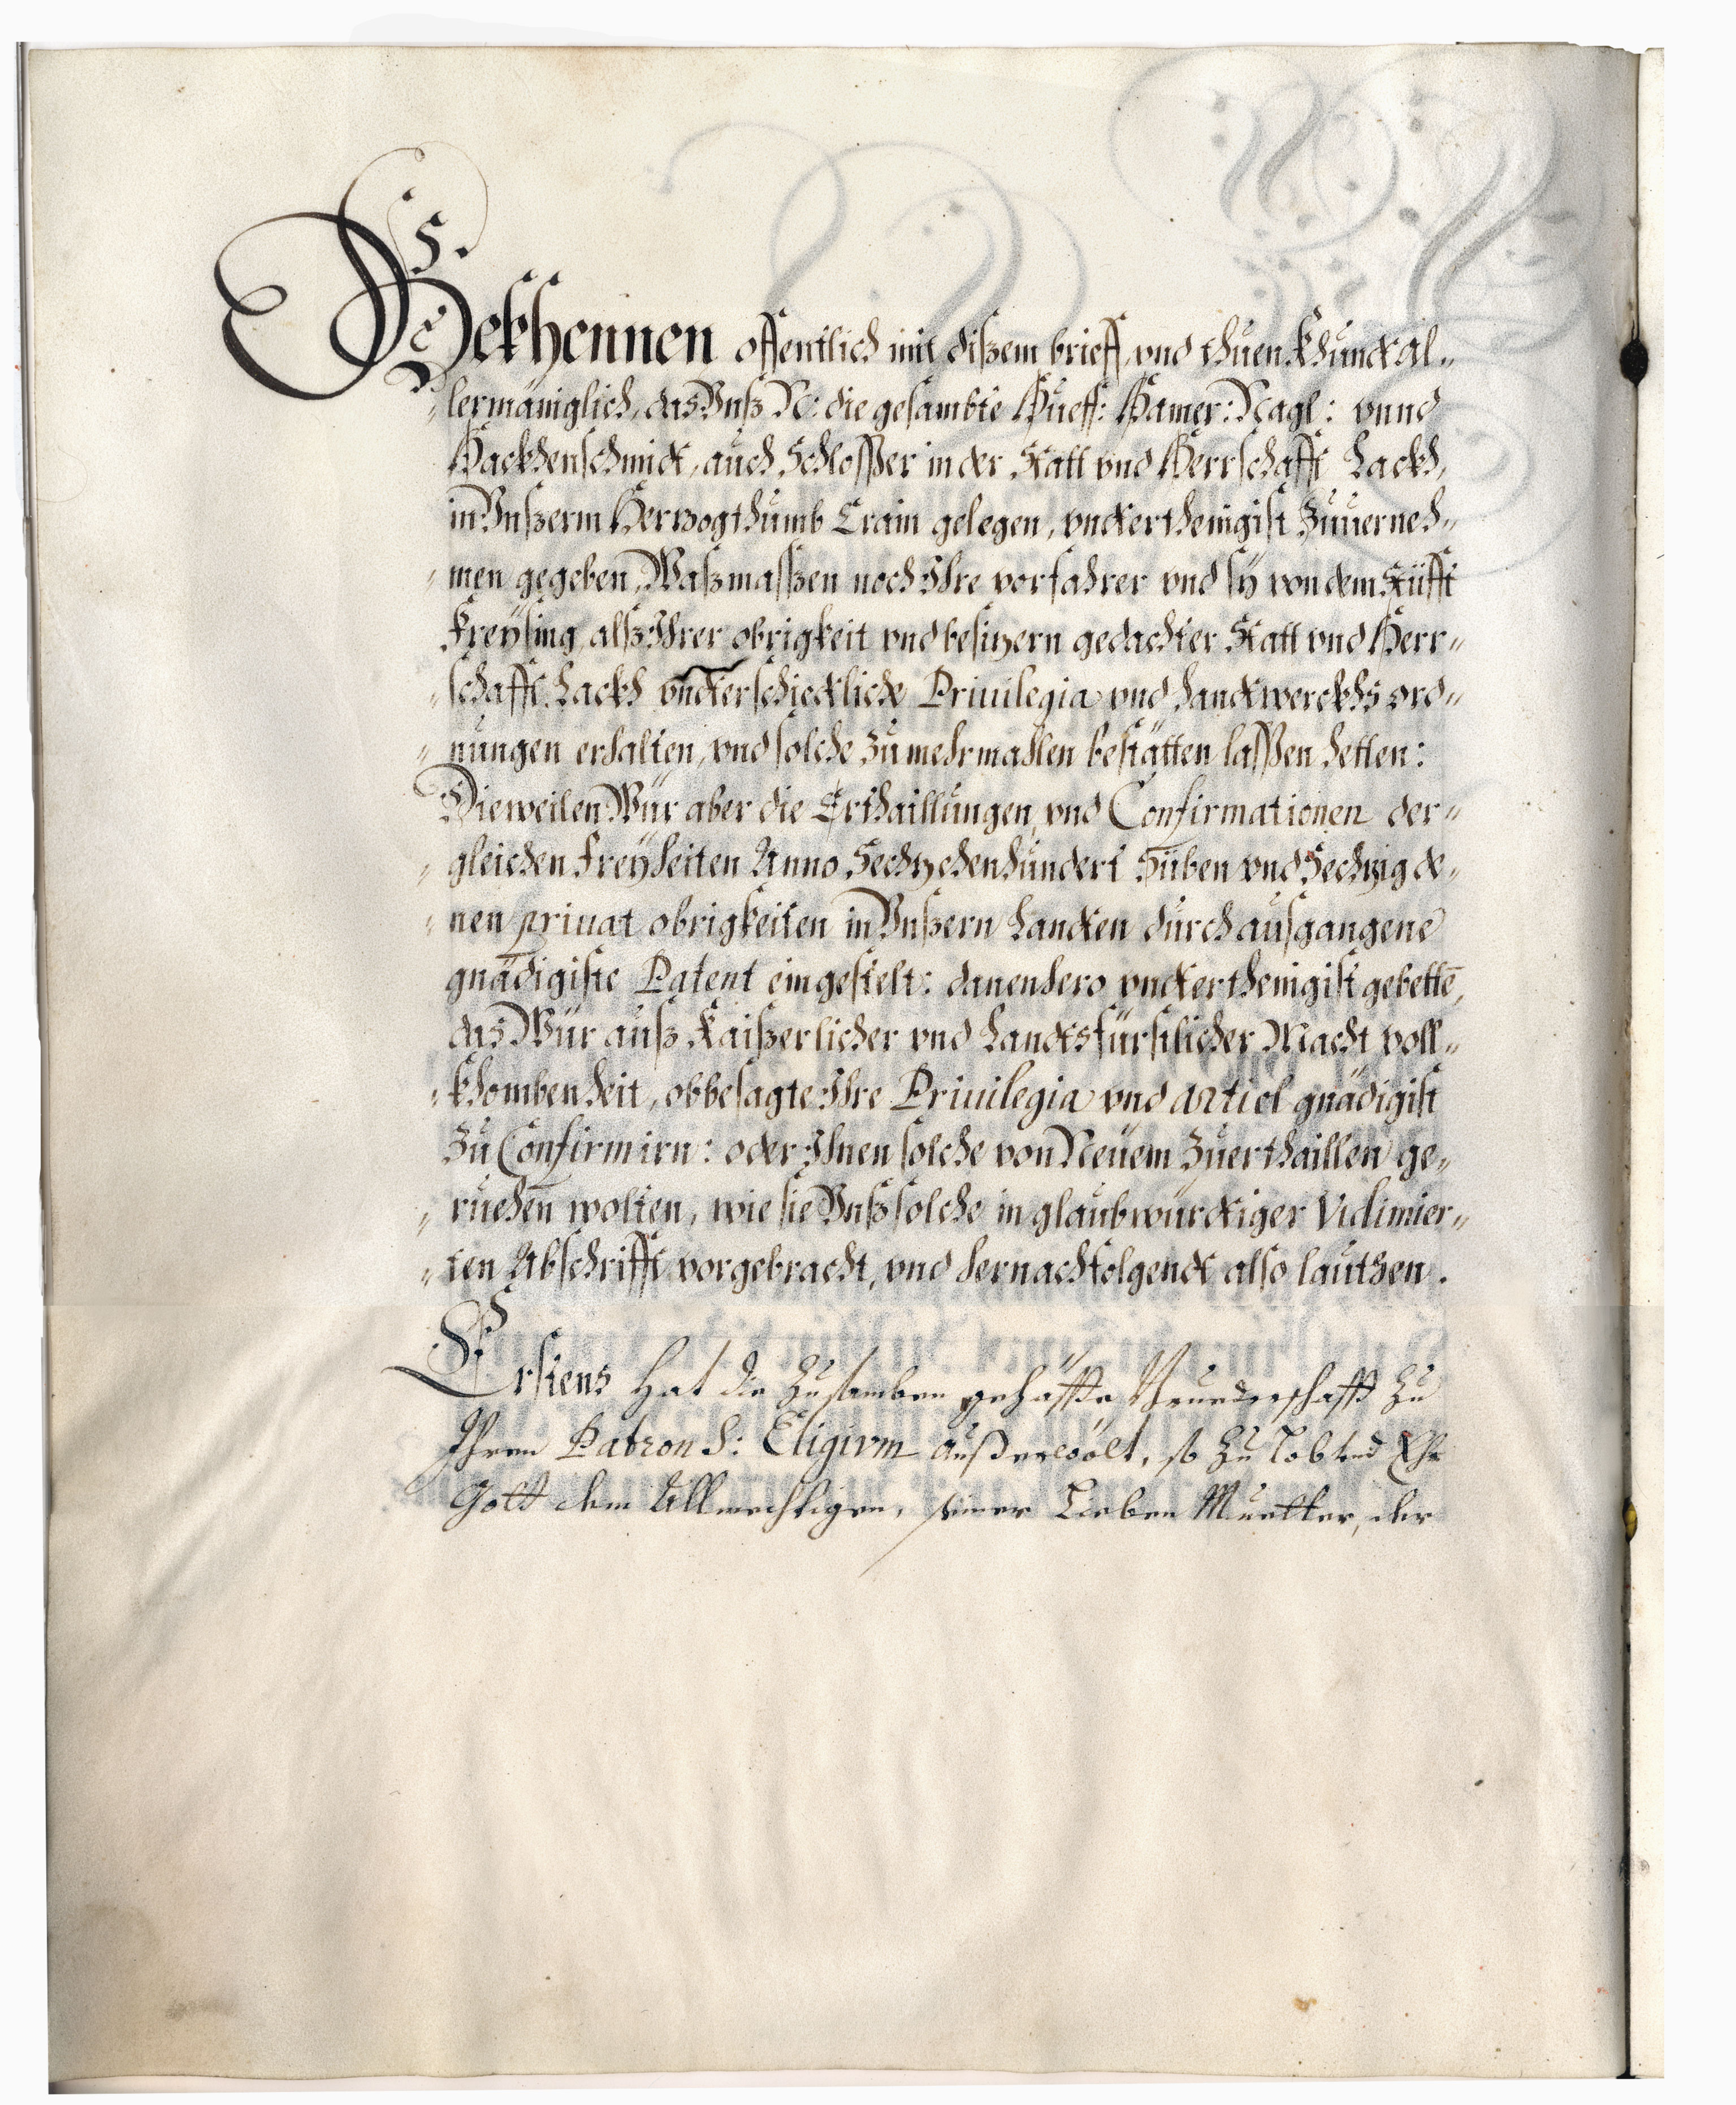 Bekhennen offentlich mit dißem brieff, vnd thuen khundt al„
„lermäniglich, das Vnß N: die gesambte Hueff: Hamer: Nagl: vnnd
Hackhenschmidt, auch Schlosser in der Statt vnd Herrschafft Lackh,
in Vnßerm Herzogthumb Crain gelegen, vndterthenigist zuuerneh„
„men gegeben, Waßmassen noch Ihre vorfahrer vnd sÿ von dem Stüfft
Freÿsing, alß Ihrer obrigkeit vnd besizern gedachter Statt vnd Herr„
„schafft Lackh vndterschiedtliche Priuilegia vnd handtwerckhs ord„
„nungen erhalten, vnd solche zu mehrmahlen bestätten lassen hetten:
Dieweilen Wür aber die Erthaillungen, vnd Confirmationen der„
„gleichen Freÿheiten Anno Sechzehenhundert Süben vnd Sechzig de„
„nen priuat obrigkeiten in Vnßern Landten durch außgangene
gnädigiste Patent eingestelt: danenhero vndterthenigist gebettē,
das Wür auß Kaißerlicher vnd Landtsfürstlicher Macht voll„
„khombenheit, obbesagte Ihre Priuilegia vnd articl gnädigist
zu Confirmirn: oder Ihnen solche von Neuem zuerthaillen ge„
„ruehen wolten, wie sie Vnß solche in glaubwürdtiger Vidimier„
„ten Abschrifft vorgebracht, vnd hernachfolgendt also lauthen.
Erstens Hat die zusamben gehäffte Bruederschafft zu
Ihren Patron S: Eligivm außerwölt, so zu Lob vnd Ehr
Gott dem Allmechtigen, seiner Lieben Muetter, der